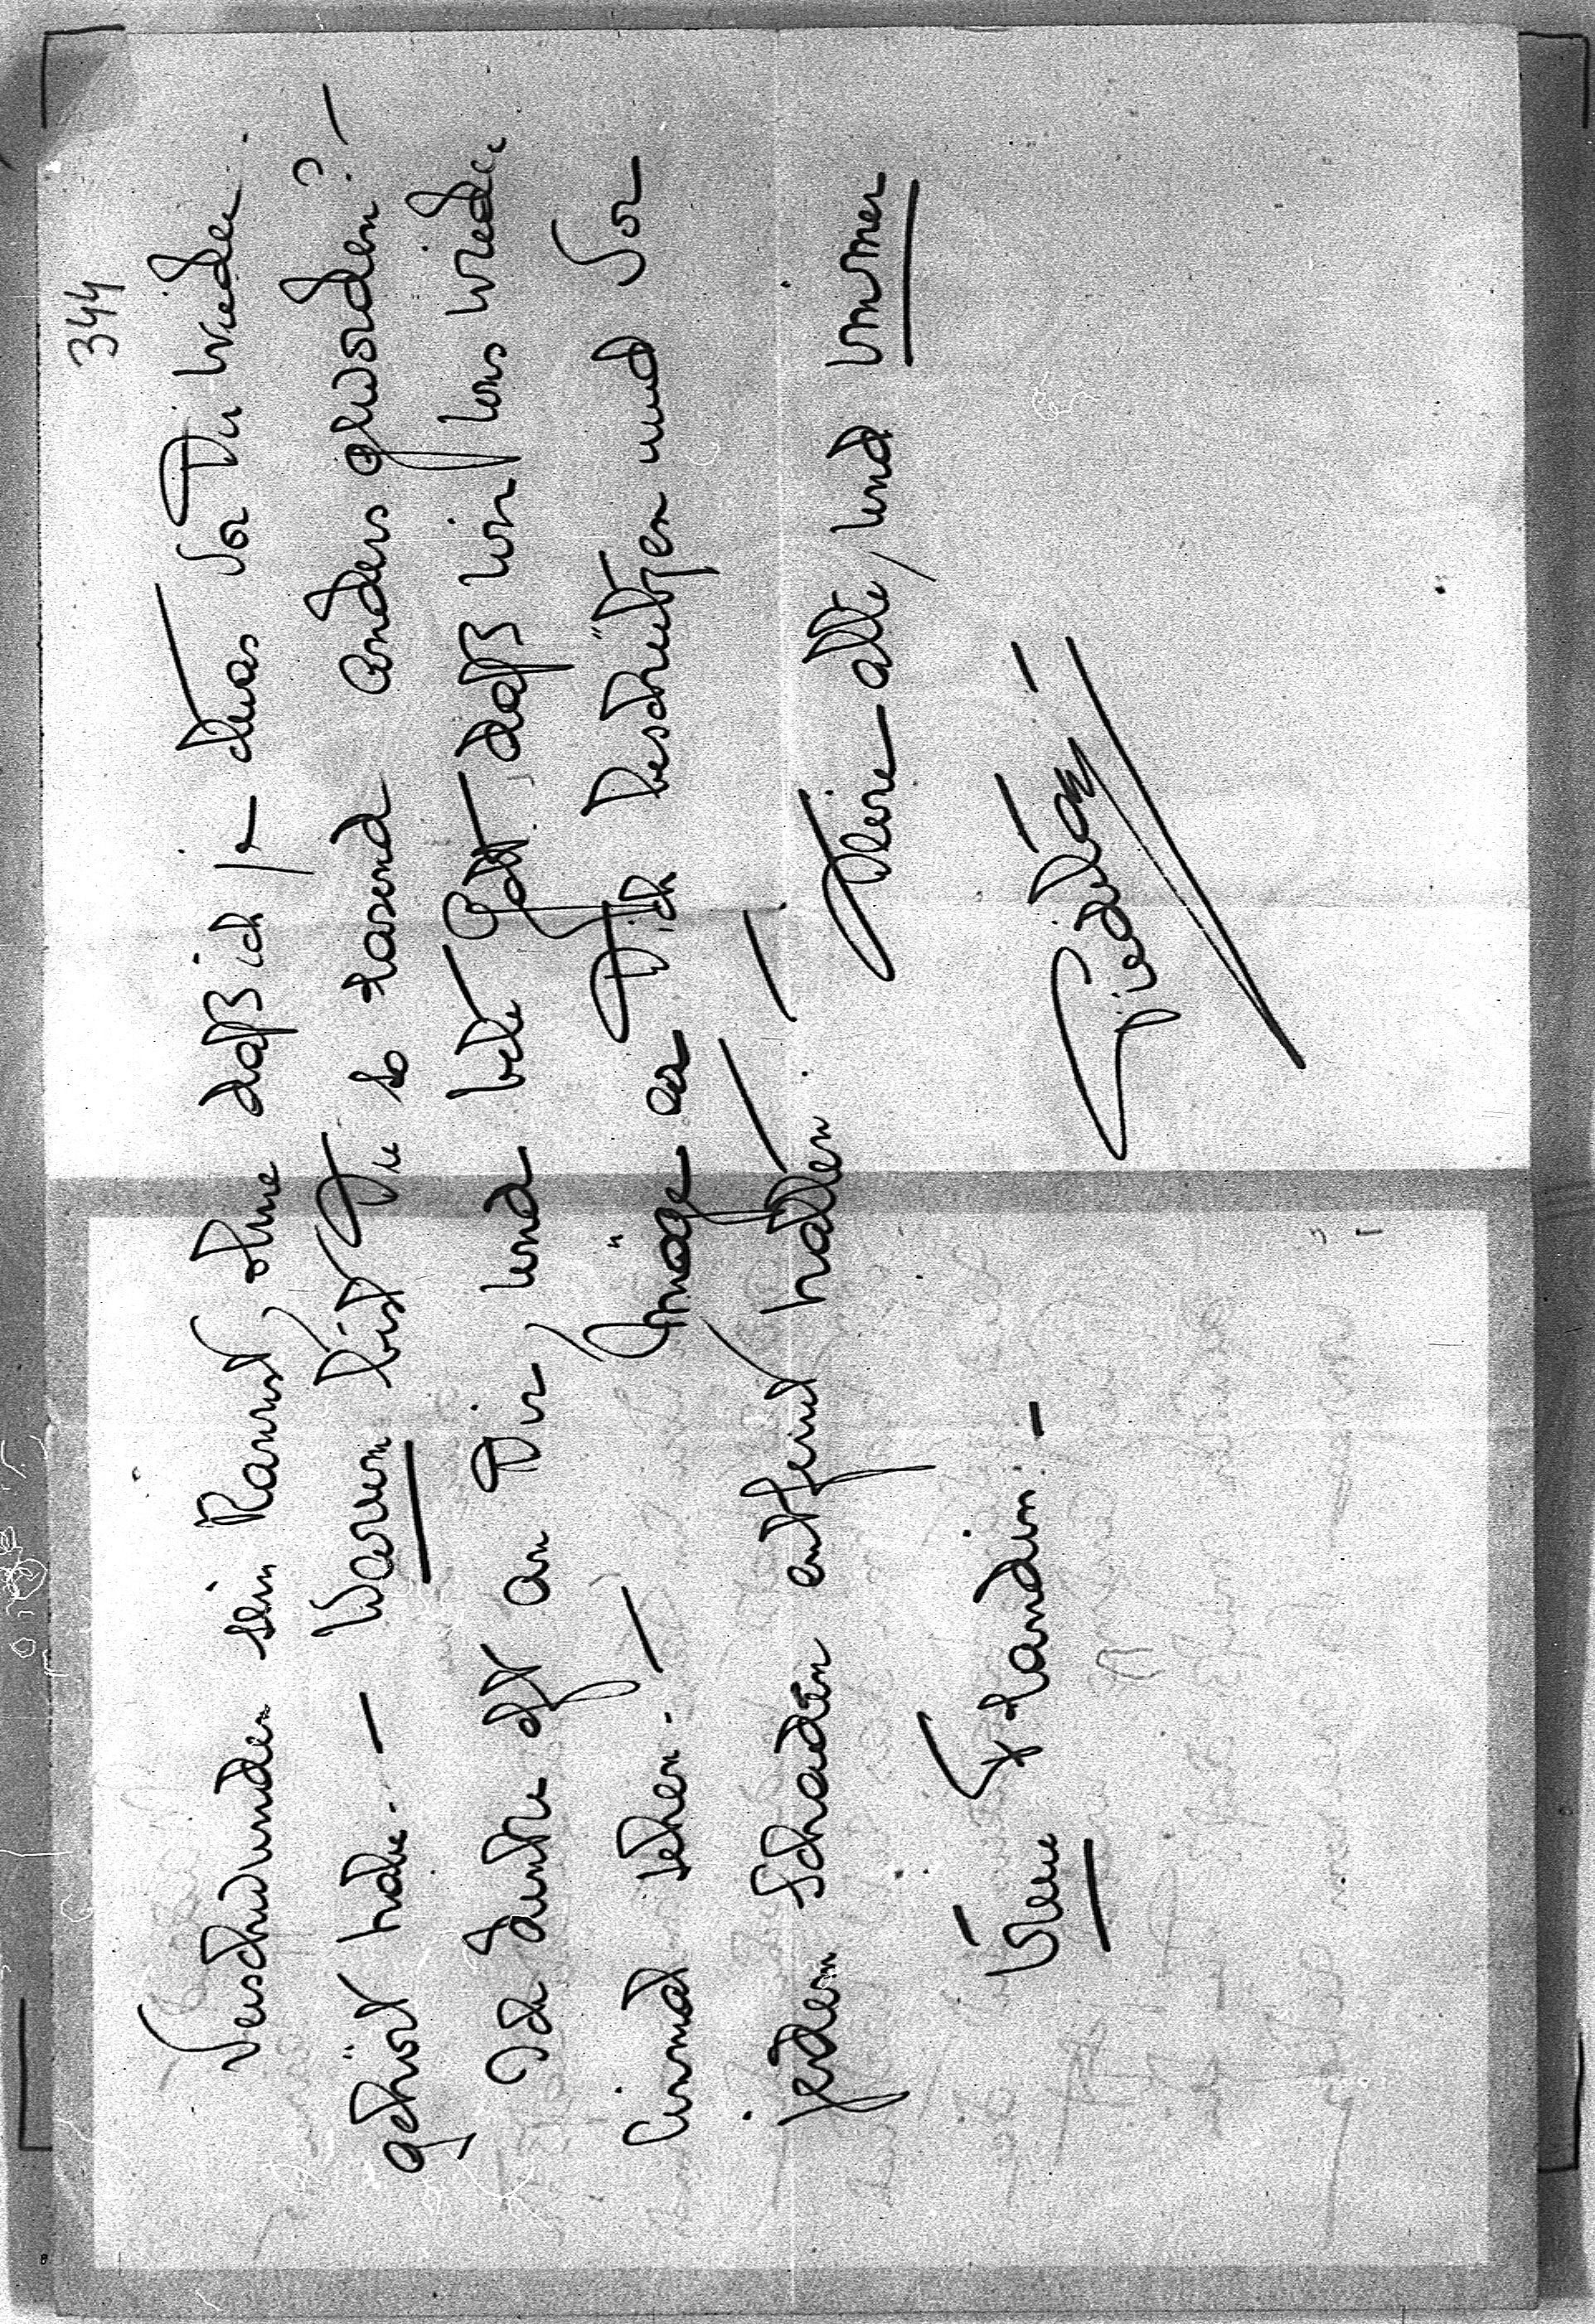 344
verschwunden sein kannst, ohne daß ich je etwas von Dir wieder
gehört habe. — Warum bist Du so rasend anders geworden? —
Ich denke oft an Dir, und bete Gott, daß wir uns wieder
einmal sehen. — möge er Dich beschützen und vor
jedem Schaden entfernt halten. —
Deine alte, und immer
treue Freundin. —